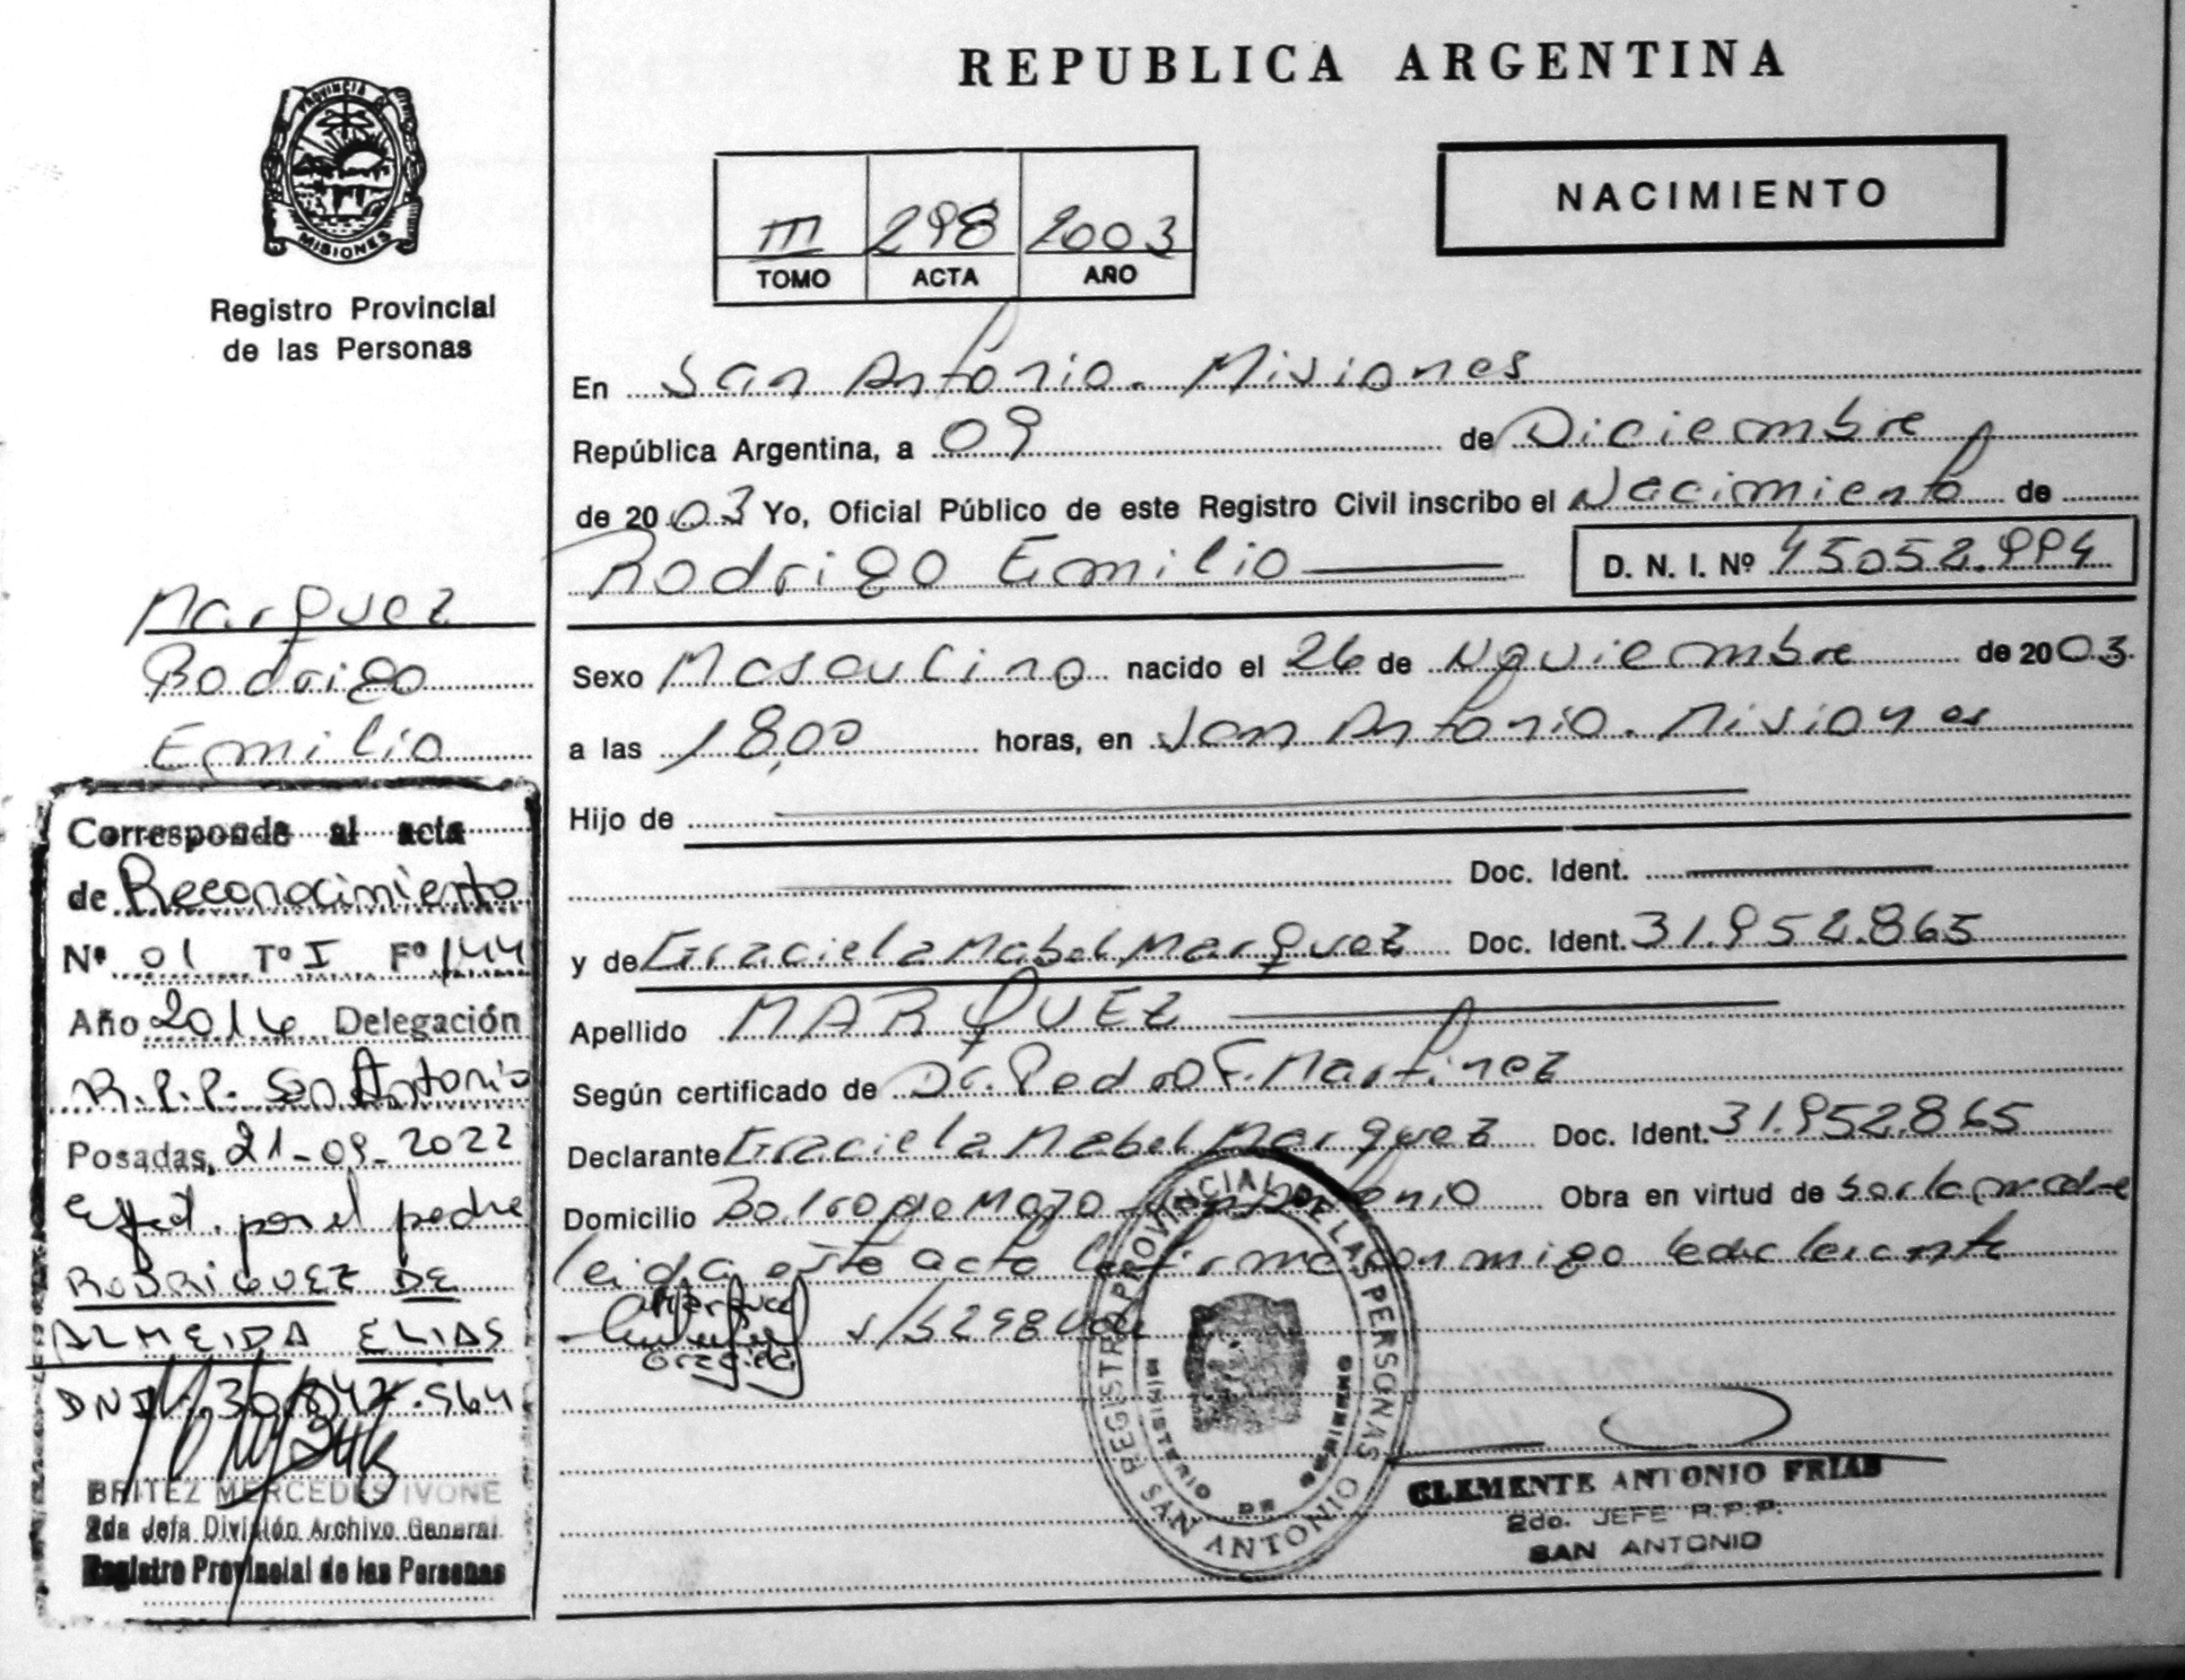 REPUBLICA ARGENTINA
PROVINCIA DE
MISIONES
Registro Provincial
de las Personas
NACIMIENTO
III 298 2003
TOMO ACTA AÑO
En San Antonio. Misiones
República Argentina, a 09 de Diciembre
de 2003 Yo, Oficial Público de este Registro Civil inscribo el Nacimiento de
Rodrigo Emilio D. N. I. Nº 45052.994
Marquez
Rodrigo
Emilio
Sexo Masculino nacido el 26 de Noviembre de 2003
a las 18,00 horas, en San Antonio. Misiones
Hijo de
Doc. Ident.
y de Graciela Mabel Marquez Doc. Ident. 31.952.865
Apellido MARQUEZ
Según certificado de Dr. Pedro F. Martinez
Declarante Graciela Mabel Marquez Doc. Ident. 31.952.865
Domicilio Bo. 1ro de Mayo San Antonio Obra en virtud de ser la madre
leida este acta la firma conmigo la declarante
Marquez
Graciela
Corresponde al acta
de Reconocimiento
Nº 01 Tº I Fº 144
Año 2014 Delegación
R.P.P. San Antonio
Posadas, 21-09-2022
Efect. por el padre
RODRIGUEZ DE
ALMEIDA ELIAS
DNI
BRITEZ MERCEDES IVONE
2da Jefa División Archivo General
Registro Provincial de las Personas
REGISTRO PROVINCIAL DE LAS PERSONAS
MINISTERIO DE GOBIERNO
SAN ANTONIO
CLEMENTE ANTONIO FRIAS
2do. JEFE R.P.P.
SAN ANTONIO